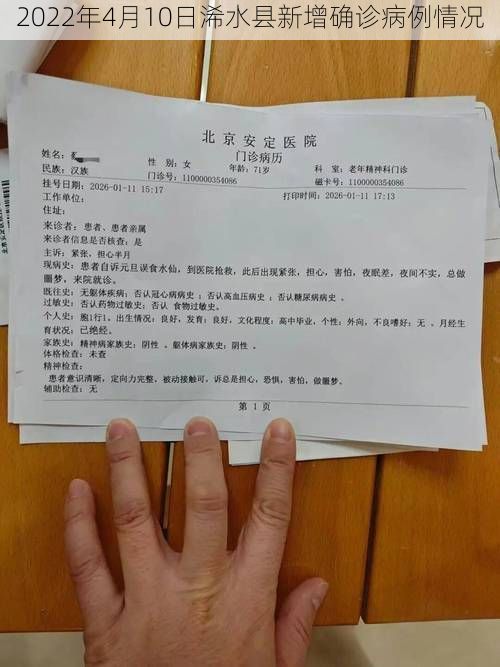 2022年4月10日浠水县新增确诊病例情况
北京安定医院
门诊病历
姓名:
性 别: 女
年龄: 71岁
科 室: 老年精神科门诊
民族: 汉族
门诊号: 1100000354086
磁卡号: 1100000354086
挂号日期: 2026-01-11 15:17
打印时间: 2026-01-11 17:13
工作单位:
住址:
来诊者: 患者、患者亲属
来诊者信息是否核查: 是
主诉: 紧张,担心半月
现病史: 患者自诉元旦误食水仙,到医院抢救,此后出现紧张,担心,害怕,夜眠差,夜间不实,总做
噩梦,来院就诊。
既往史: 无躯体疾病; 否认冠心病病史 ; 否认高血压病史 ; 否认糖尿病病史 。
过敏史: 否认药物过敏史; 否认 食物过敏史。
个人史: 胞1行1。出生情况: 良好,发育: 良好,文化程度: 高中毕业,个性: 外向,不良嗜好: 无 。月经生
育状况: 已绝经。
家族史: 精神病家族史: 阴性 。躯体病家族史: 阴性 。
体格检查: 未查
精神检查:
患者意识清晰,定向力完整,被动接触可,诉总是担心,恐惧,害怕,做噩梦。
辅助检查: 无
第 1 页